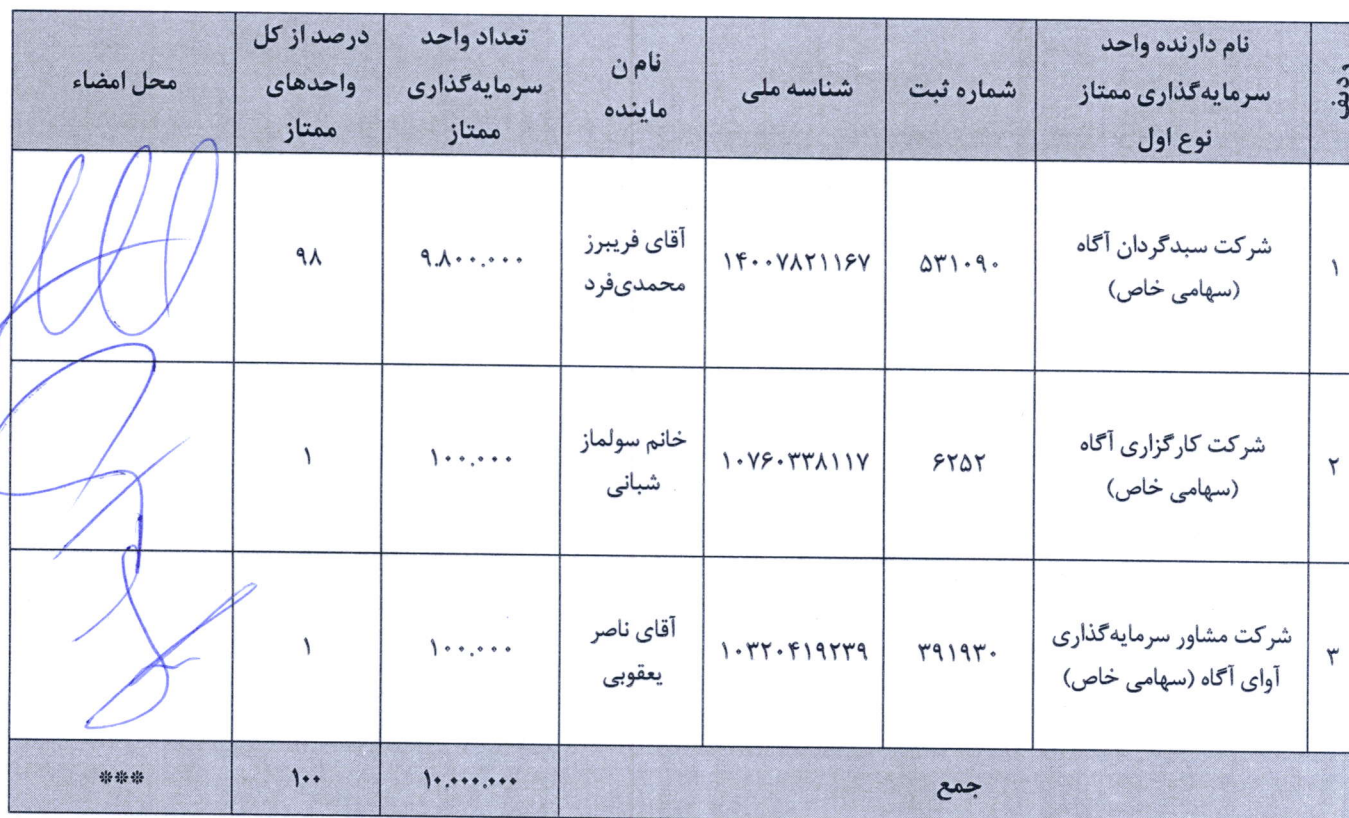 ردیف
نام دارنده واحد
سرمایه‌گذاری ممتاز
نوع اول
شماره ثبت
شناسه ملی
نام ن
ماینده
تعداد واحد
سرمایه‌گذاری
ممتاز
درصد از کل
واحدهای
ممتاز
محل امضاء
۱
شرکت سبدگردان آگاه
(سهامی خاص)
۵۳۱۰۹۰
۱۴۰۰۷۸۲۱۱۶۷
آقای فریبرز
محمدی‌فرد
۹.۸۰۰.۰۰۰
۹۸
۲
شرکت کارگزاری آگاه
(سهامی خاص)
۶۲۵۲
۱۰۷۶۰۳۳۸۱۱۷
خانم سولماز
شبانی
۱۰۰.۰۰۰
۱
۳
شرکت مشاور سرمایه‌گذاری
آوای آگاه (سهامی خاص)
۳۹۱۹۳۰
۱۰۳۲۰۴۱۹۲۳۹
آقای ناصر
یعقوبی
۱۰۰.۰۰۰
۱
جمع
۱۰.۰۰۰.۰۰۰
۱۰۰
***